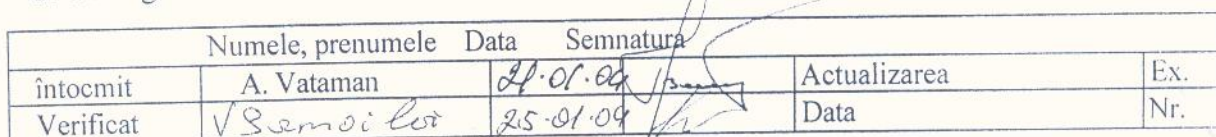 Numele, prenumele Data Semnatura
întocmit A. Vataman 21.01.09 Actualizarea Ex.
Verificat 25.01.09 Data Nr.